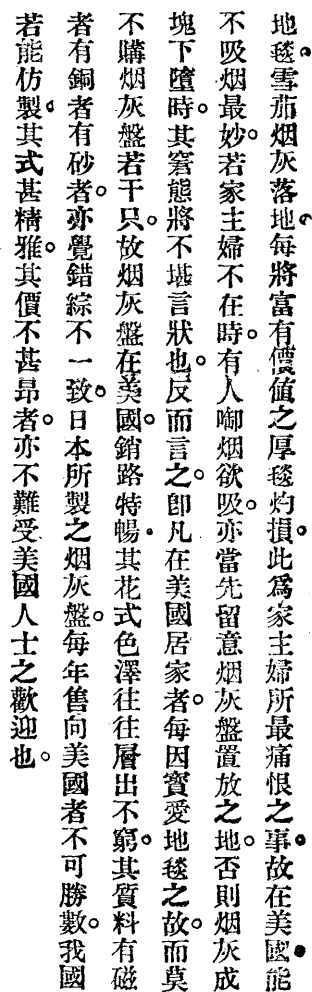 地毯。雪茄烟灰落地。每將富有價值之厚毯灼損。此爲家主婦所最痛恨之事。故在美國能
不吸烟最妙。若家主婦不在時。有人啣烟欲吸。亦當先留意烟灰盤置放之地。否則烟灰成
塊下墮時。其窘態將不堪言狀也。反而言之。卽凡在美國居家者。每因寶愛地毯之故。而莫
不購烟灰盤若干只。故烟灰盤在美國。銷路特暢。其花式色澤往往層出不窮。其質料有磁
者有銅者有砂者。亦覺錯綜不一致。日本所製之烟灰盤。每年售向美國者不可勝數。我國
若能仿製。其式甚精雅。其價不甚昂者。亦不難受美國人士之歡迎也。